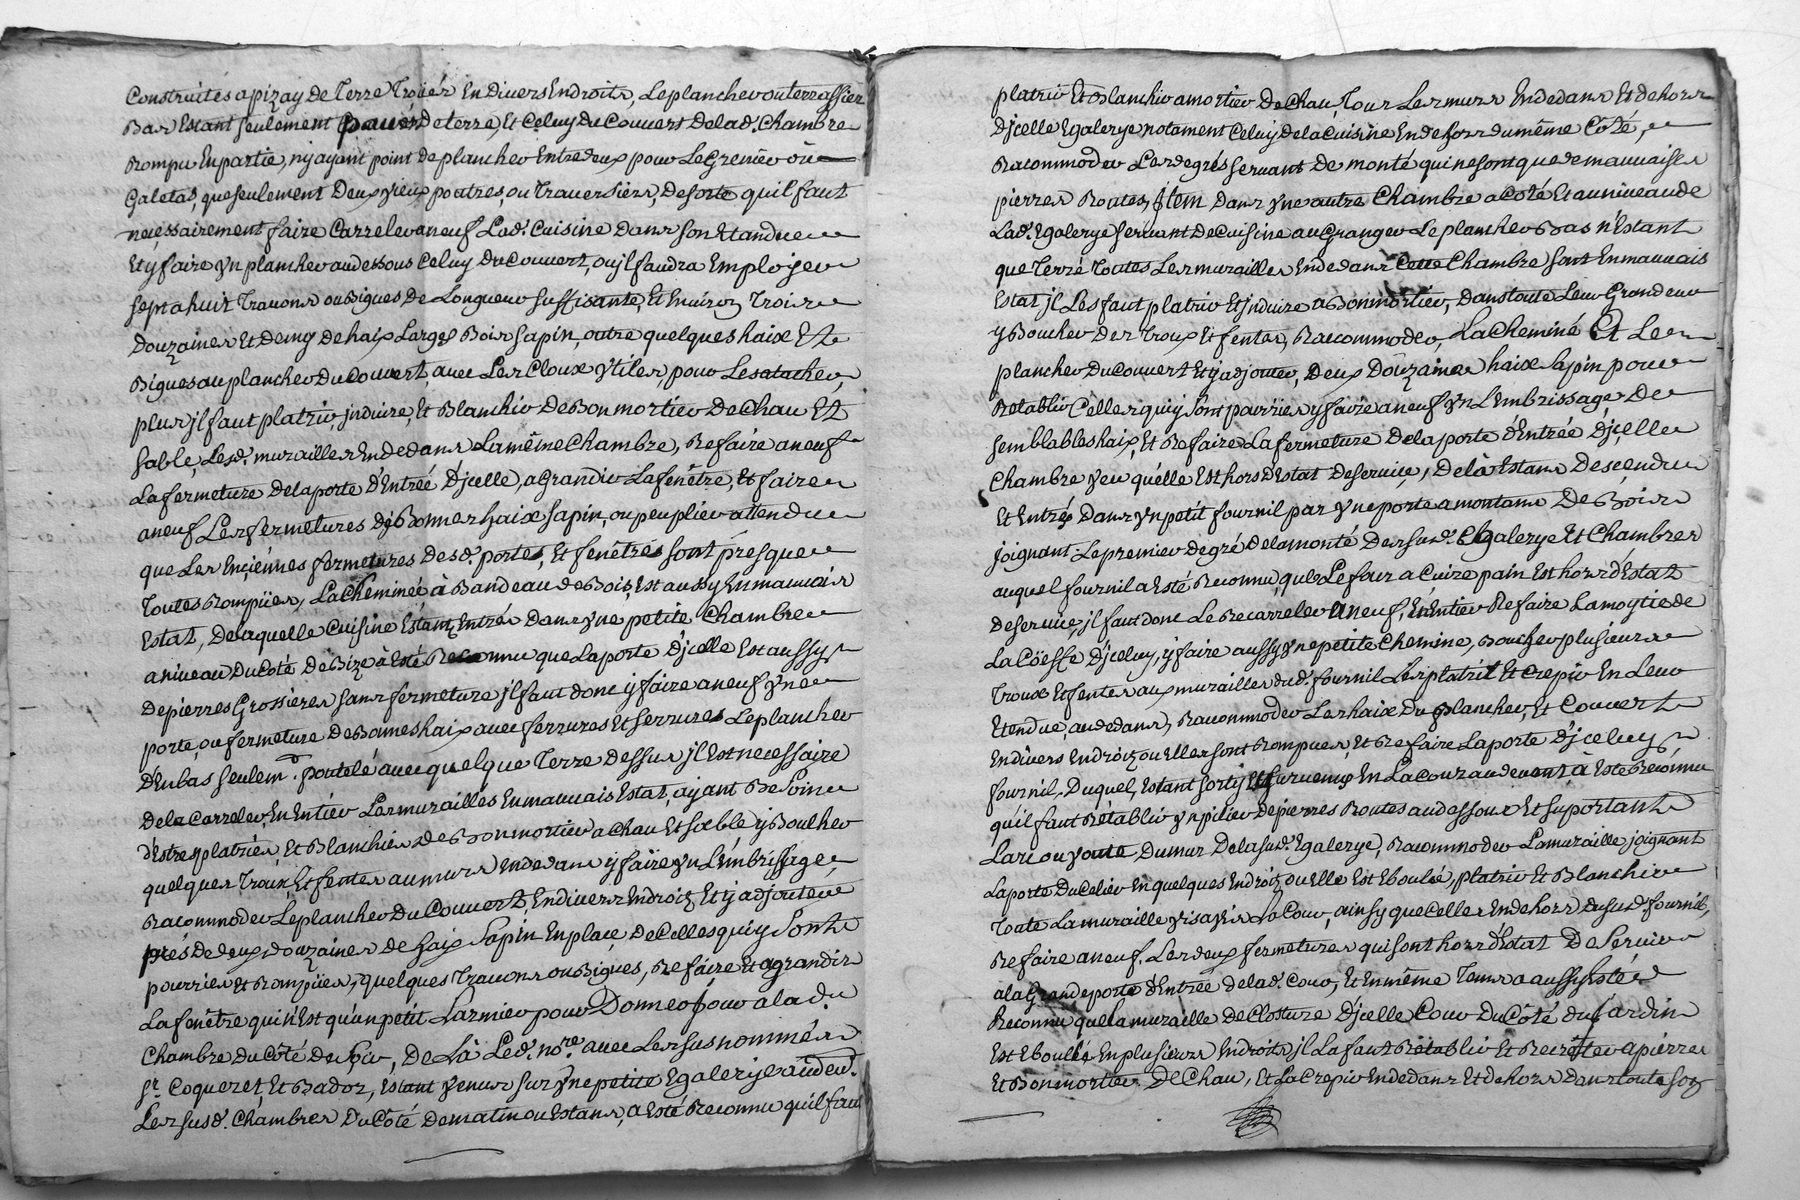 Construites a pizay de Terre Troüér En Divers Endroits, Le plancher ou terrassier
Bas Estant seulement pavér De terre, Et Celuy Du Couvert De lad. Chambre
Rompu En partie, n'y ayant point de plancher Entredeux pour Le Grenier ou
Galetas, que seulement Deux vieux poutres, ou Traversiers, De sorte qu'il faut
necessairement faire Carreler a neuf Lad. Cuisine Dans son Etandue
Et y faire Vn plancher au dessous Celuy Du Couvert, ou jl faudra Employer
sept a huit Travons ou Bigues De Longueur suffisante, Et Environ Trois
Douzaines Et Demy De haix Larges Bois sapin, outre quelques haix Et
Bigues au plancher Du Couvert, avec Les Cloux Vtiles, pour Les atacher,
plus jl faut platrir, jnduire, Et Blanchir De Bon mortier De Chau Et
Sable, Lesd. murailles En dedans La même Chambre, Refaire a neuf
La fermeture De la porte d'Entrée D'jcelle, aGrandir La fenêtre, Et faire
a neuf Les fermetures De Bonnes haix sapin, ou peuplier attendu
que Les Enciénnes fermetures Desd. portes, Et fenêtres sont presque
Toutes Rompües, La Cheminée à Bandeau de Bois, Est aussy En mauvais
Estat, De laquelle Cuisine Estant Entrés Dans Vne petite Chambre
a niveau Du Côté De Bize à Esté Reconnu que La porte D'jcelle Est aussy
De pierres Grossieres sans fermeture jl faut donc y faire a neuf Vne
porte, ou fermeture De Bonnes haix avec ferrures Et serrures Le plancher
D'En bas seulem.t poutelé avec quelque Terre Dessus jl Est necessaire
De le Carreler, En Entiér Les murailles En mauvais Estat, ayant Besoin
d'Estres platriér, Et Blanchies de Bon mortier a Chau Et Sable y Boucher
quelques Troux, Et fentes au murs En dedans y faire Vn Lembrissage,
Racommoder Le plancher Du Couvert, En divers Endroitz, Et y adjouter
prés De deux douzaines de haix Sapin, En place De Celles qui y Sont
pourries Et Rompües, quelques Travons ou Bigues, Refaire Et agrandir
La fenêtre qui n'Est qu'un petit Larmier pour Donner Jour a lad.
Chambre Du Côté Du Soir, De Là Led. no.re avec Les sus nommés
s.r Coqueret, Et Badoz, Estant Venus sur Vne petite Egalerye au dev.
Les susd. Chambres Du Côté De matin ou Estans, a Esté Reconnu qu'il faut
platrir Et Blanchir a mortier De Chau, Tour Les murs En dedans Et dehors
D'jcelle Egalerye notament Celuy de la Cuisine En dehors du même Côté,
Racommoder Les degrés servant De monté qui ne sont que de mauvaises
pierres Routes, Jtem Dans Vne autre Chambre a Coté Et au niveau de
Lad. Egalerye servant De Cuisine au Granger Le plancher Bas n'Estant
que Terré Toutes Les murailles En dedans Cette Chambre sont En mauvais
Estat jl Les faut platrir Et jnduire a Bon mortier, Dans toute Leur Grandeur
y Boucher Des Troux Et fentes, Racommoder, La Cheminé Et Le
plancher Du Couvert Et y adjouter, Deux Douzaines haix sapin pour
Rétablir Celles qui y Sont pourries y faire a neuf Vn Lembrissage De
semblables haix, Et Refaire La fermeture De la porte d'Entrée D'jcelle
Chambre Veu qu'elle Est hors d'Estat De service, De là Estans Descendu
Et Entrés Dans Vn petit fournil par Vne porte a montans De Bois
joignant Le premier degré De la monté Des sus d. Egalerye Et Chambres
auquel fournil a Esté Reconnu, que Le four a Cuire pain Est hors d'Estat
De service, jl faut donc Le Recarreler aneuf, En Entier Refaire La moytie de
La Coësse D'jceluy, y faire aussy Vne petite Cheminé, Boucher plusieurs
Troux Et fentes aux murailles dud. fournil Les platrir Et Crepir En Leur
Etendue, au dedans, Racommoder Les haix Du plancher, Et Couvert
En divers Endroitz ou Elles sont Rompues, Et Refaire La porte D'jceluy
fournil, Duquel, Estant sortis Et survenus En La Cour au devant, à Esté Reconnu
qu'il faut Rétablir Vn pilier De pierres Routes au dessous Et suportant
L'arc ou Voute, Du mur De la susd. Egalerye, Racommoder La muraille joignant
La porte Du Celier En quelques Endroitz ou Elle Est Eboulée, platrir Et Blanchir
Toute La muraille Vis a Vis La Cour, ainsy que Celles En dehors du susd. fournil,
Refaire a neuf Les deux fermetures qui sont hors d'Estat De Servir
a la Grande porte d'Entrée de lad. Cour, Et En même Tems a aussy Esté
Reconnu que La muraille De Closture D'jcelle Cour Du Côté du Jardin
Est Eboulée En plusieurs Endroits jl La faut Rétablir Et Recrétter a pierres
Et Bon mortier De Chau, Et La Crepir En dedans Et dehors Dans toute son